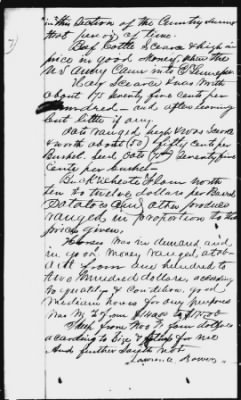 in this Section of the Country during
that period of time.
Beef Cattle Scarce & high in
price in good Money, when the
U S Army Came into E Tennessee
Hay Scarce & was worth
about $1 Seventy five cents per
Hundred — and after leaving
but little if any.
Oats ranged high & was Scarce
& worth about (50) fifty cents per
Bushel. Seed Oats (75) Seventy five
Cents per bushel —
Buckwheat Flour worth
ten to twelve dollars per Barrel
Potatoes and other produce
ranged in proportion to the
prices given.
Horses was in demand and
in good Money ranged, at
all from one hundred to
two hundred dollars, according
to quality & Condition. good
medium horses for any purpose
was from $140.00 to $150.00
Sheep from two to four dollars
according to Size &
And further Saith not.
Lawrence Bowers